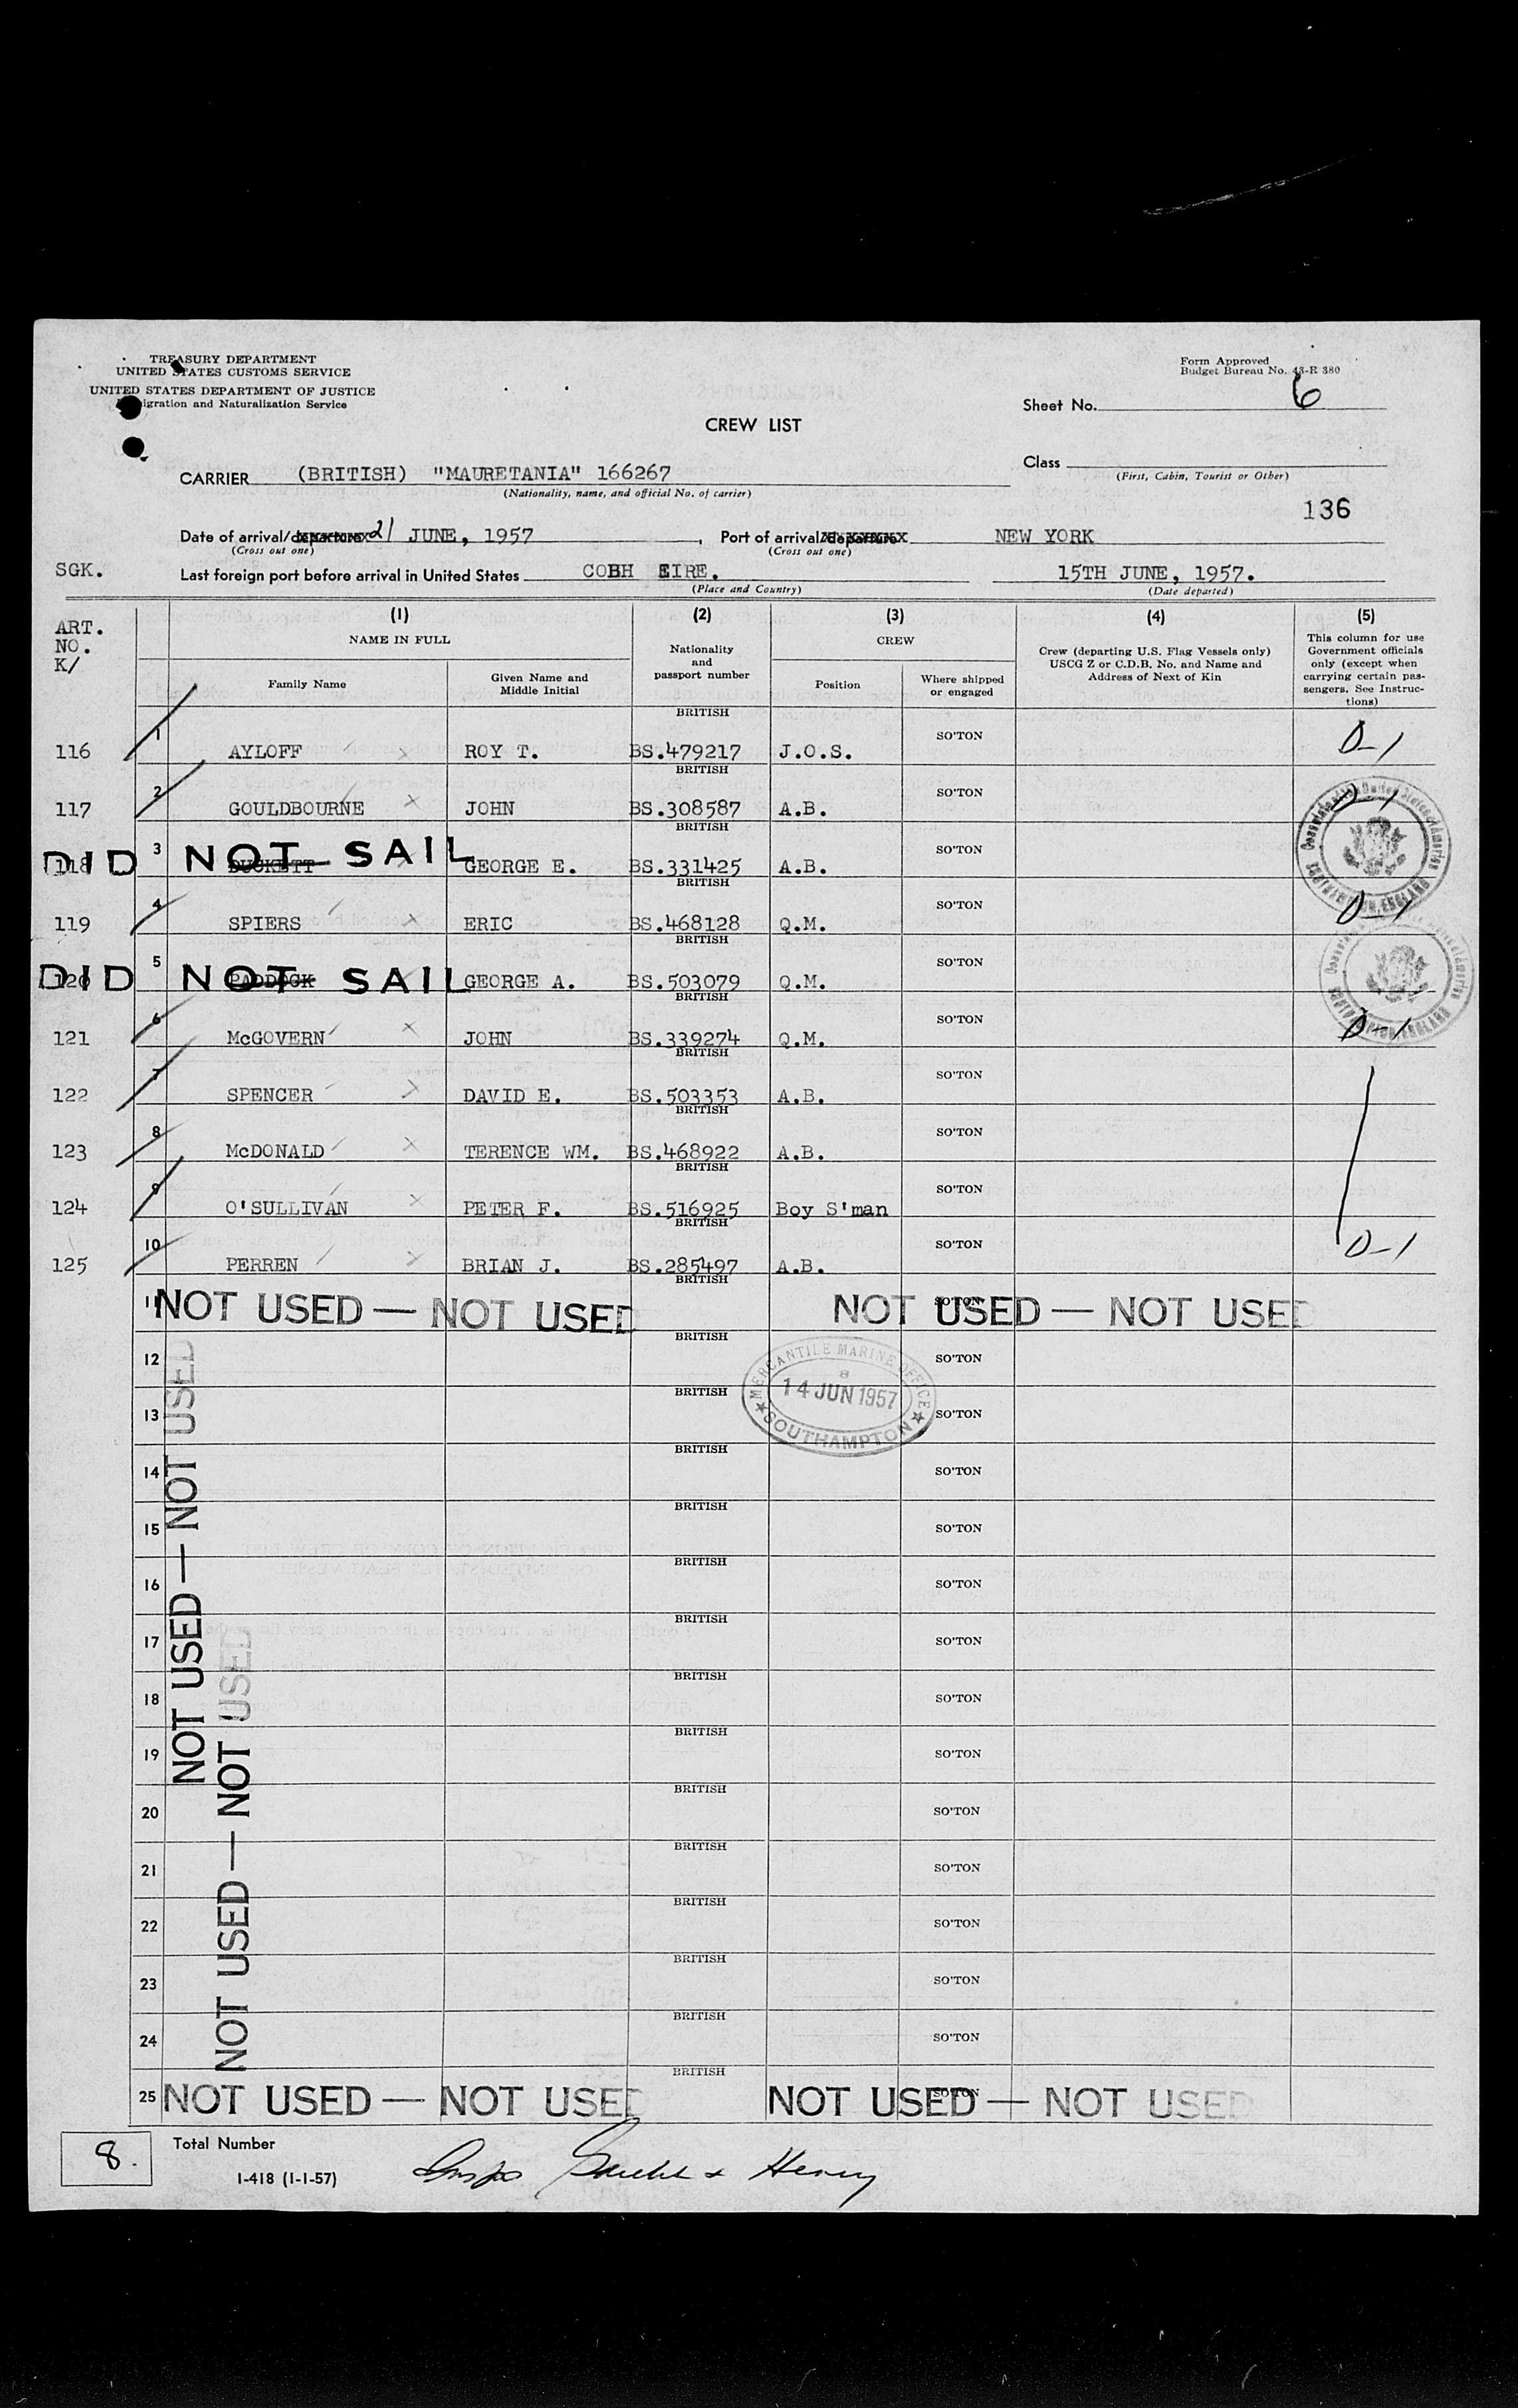 TREASURY DEPARTMENT
UNITED STATES CUSTOMS SERVICE
UNITED STATES DEPARTMENT OF JUSTICE
Immigration and Naturalization Service
Form Approved
Budget Bureau No. 43-R 380
Sheet No. 6
CREW LIST
CARRIER (BRITISH) "MAURETANIA" 166267
(Nationality, name, and official No. of carrier)
Class
(First, Cabin, Tourist or Other)
136
Date of arrival/departure 21 JUNE, 1957, Port of arrival/departure NEW YORK
(Cross out one) (Cross out one)
SGK. Last foreign port before arrival in United States COBH EIRE. 15TH JUNE, 1957.
(Place and Country) (Date departed)
ART. NO. K/
(1) (2) (3) (4) (5)
NAME IN FULL
Family Name
Given Name and Middle Initial
Nationality and passport number
CREW
Position
Where shipped or engaged
Crew (departing U.S. Flag Vessels only) USCG Z or C.D.B. No. and Name and Address of Next of Kin
This column for use Government officials only (except when carrying certain passengers. See Instructions)
BRITISH
116 1 AYLOFF ROY T. BS.479217 J.O.S. SO'TON D-1
BRITISH
117 2 GOULDBOURNE JOHN BS.308587 A.B. SO'TON D-1
BRITISH
118 3 DUCKETT GEORGE E. BS.331425 A.B. SO'TON
DID NOT SAIL
BRITISH
119 4 SPIERS ERIC BS.468128 Q.M. SO'TON D-1
BRITISH
120 5 PADDOCK GEORGE A. BS.503079 Q.M. SO'TON
DID NOT SAIL
BRITISH
121 6 McGOVERN JOHN BS.339274 Q.M. SO'TON D-1
BRITISH
122 7 SPENCER DAVID E. BS.503353 A.B. SO'TON
BRITISH
123 8 McDONALD TERENCE WM. BS.468922 A.B. SO'TON
BRITISH
124 9 O'SULLIVAN PETER F. BS.516925 Boy S'man SO'TON
BRITISH
125 10 PERREN BRIAN J. BS.285497 A.B. SO'TON D-1
BRITISH
11 NOT USED — NOT USED NOT USED — NOT USED SO'TON
BRITISH
12 SO'TON
MERCANTILE MARINE OFFICE
B
14 JUN 1957
SOUTHAMPTON
BRITISH
13 SO'TON
BRITISH
14 SO'TON
BRITISH
15 SO'TON
BRITISH
16 SO'TON
BRITISH
17 SO'TON
BRITISH
18 SO'TON
BRITISH
19 SO'TON
BRITISH
20 SO'TON
BRITISH
21 SO'TON
BRITISH
22 SO'TON
BRITISH
23 SO'TON
BRITISH
24 SO'TON
BRITISH
25 NOT USED — NOT USED NOT USED — NOT USED SO'TON
NOT USED — NOT USED
NOT USED — NOT USED
8. Total Number
I-418 (1-1-57)
Henry